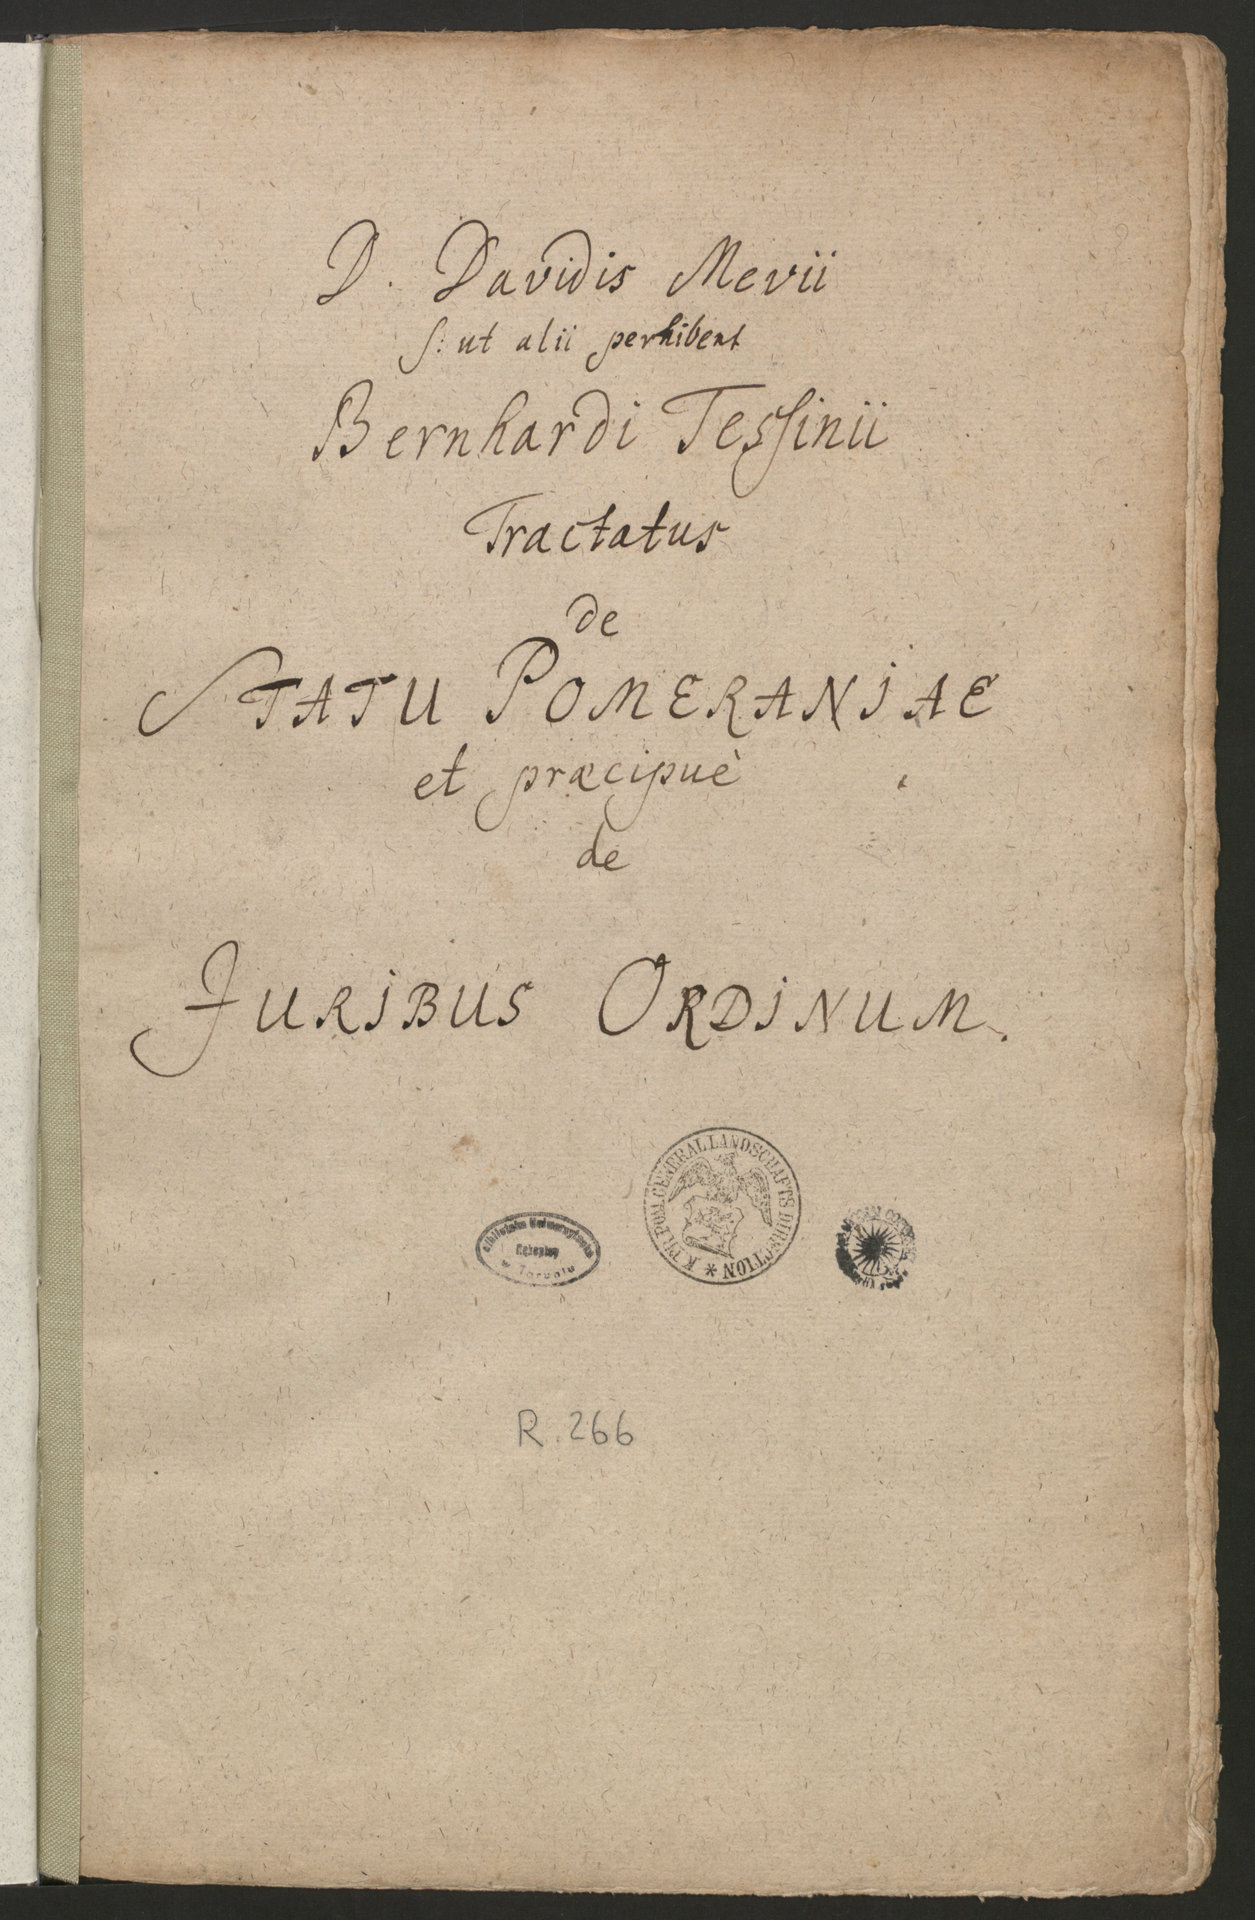 D. Davidis Mevii
s: ut alii perhibent
Bernhardi Tessinii
Tractatus
de
STATU POMERANIAE
et præcipuè
de
JURIBUS ORDINUM.
K. PR. POM. GENERAL LANDSCHAFTS DIRECTION *
Biblioteka Uniwersytecka
w Toruniu
R. 266